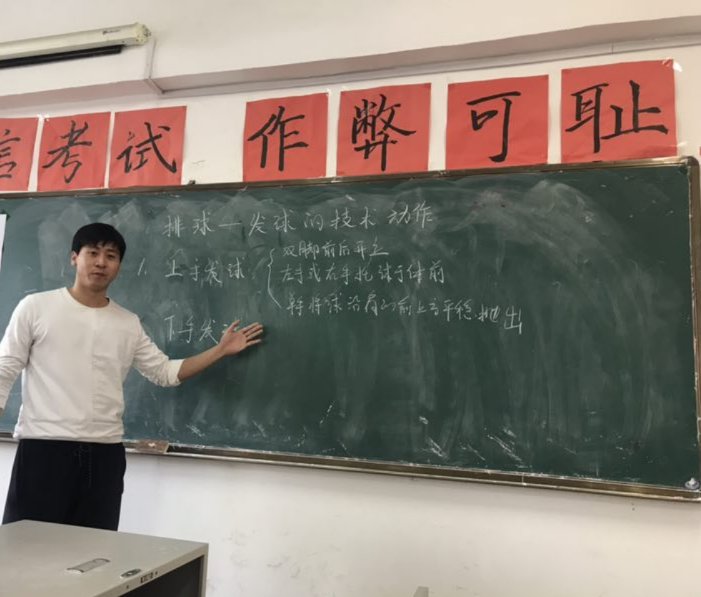 信考试 作弊可耻
排球—发球的技术动作
1. 上手发球
双脚前后开立
左手或右手托球于体前
将球沿着 前上方平稳抛出
下手发球